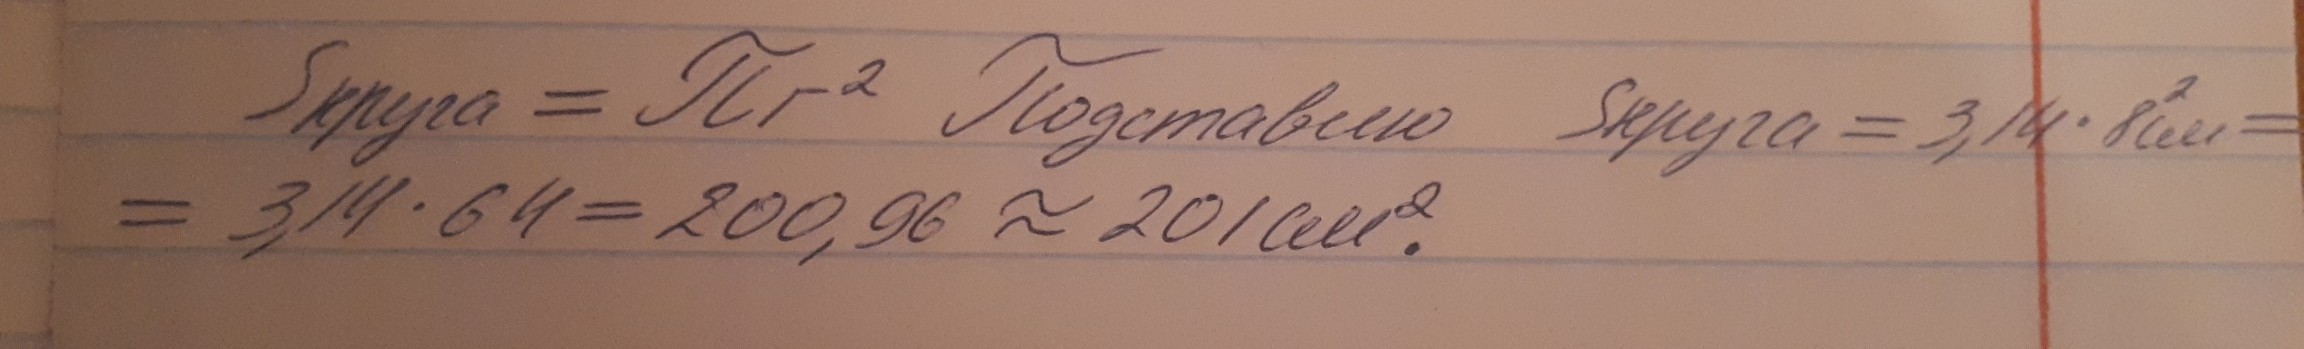 Sкруга = Пr² Подставлю Sкруга = 3,14 · 8²см =
= 3,14 · 64 = 200,96 ≈ 201 см².